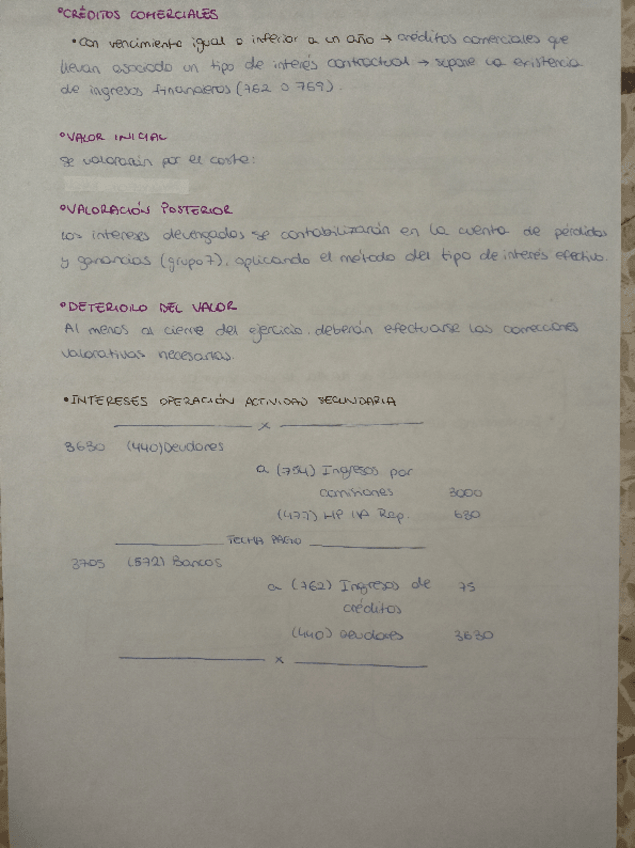 °CRÉDITOS COMERCIALES
•con vencimiento igual o inferior a un año → créditos comerciales que
llevan asociado un tipo de interés contractual → supone la existencia
de ingresos financieros (762 o 769).
°VALOR INICIAL
se valorarán por el coste:
°VALORACIÓN POSTERIOR
Los intereses devengados se contabilizarán en la cuenta de pérdidas
y ganancias (grupo 7), aplicando el método del tipo de interés efectivo.
°DETERIORO DEL VALOR
Al menos al cierre del ejercicio, deberán efectuarse las correcciones
valorativas necesarias.
•INTERESES OPERACIÓN ACTIVIDAD SECUNDARIA
x
3630 (440) Deudores
a (754) Ingresos por
comisiones 3000
(477) HP IVA Rep. 630
FECHA PAGO
3705 (572) Bancos
a (762) Ingresos de 75
créditos
(440) Deudores 3630
x